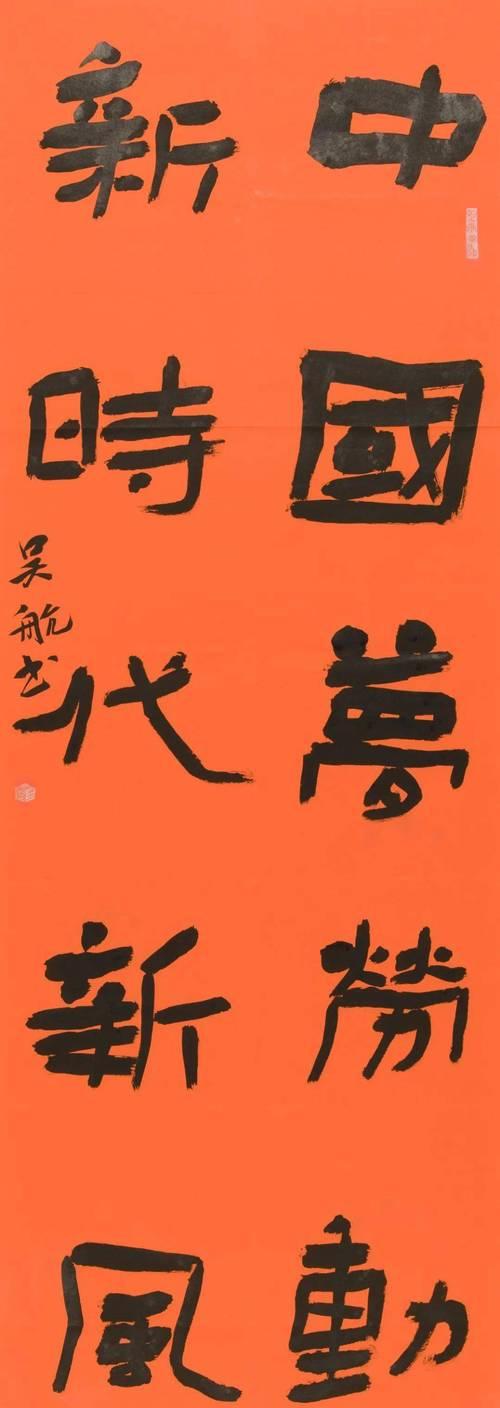 中國夢勞動
新時代新風
吴航书